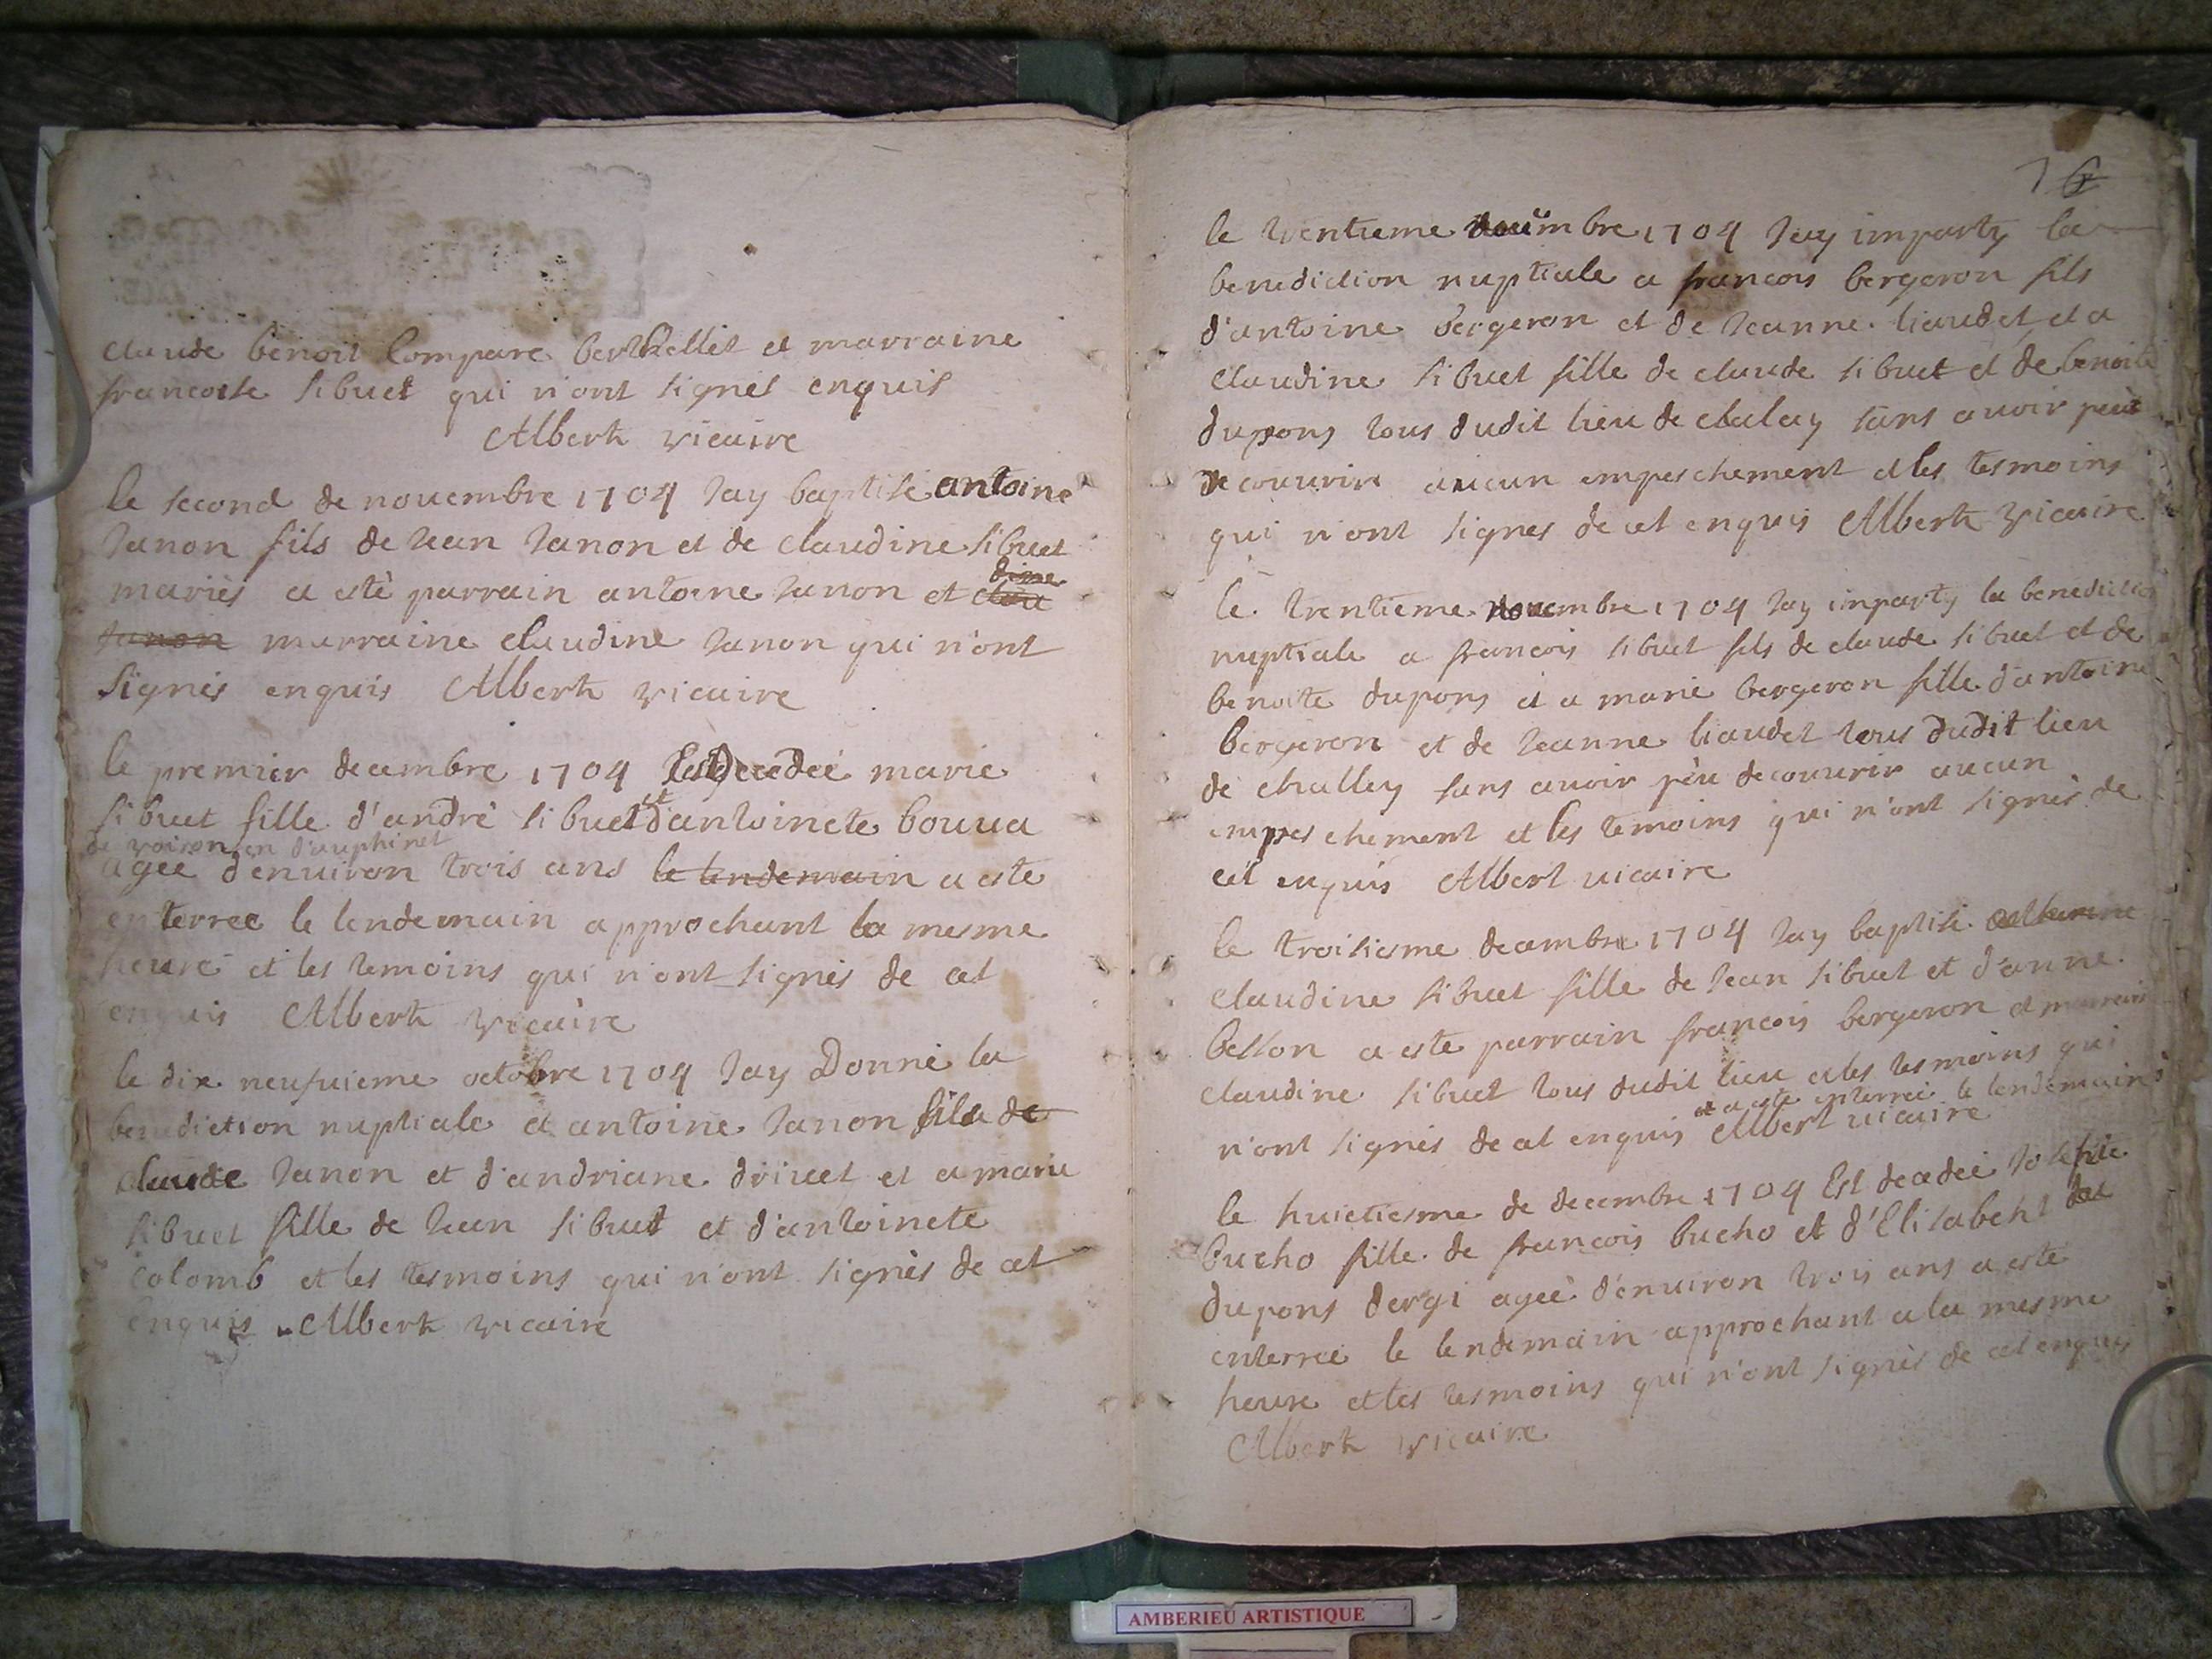 claude benoit Compare berthellet et marraine
francoise sibuet qui n'ont signes enquis
Albert vicaire
le second de novembre 1704 Jay baptisé antoine
Janon fils de Jean Janon et de claudine sibuet
mariés a esté parrain antoine Janon et
dine
Janon marraine claudine Janon qui n'ont
signés enquis Albert vicaire
le premier decembre 1704 Est Decedeé marie
sibuet fille d'andré sibuet et d'antoinete bouua
de voiron en dauphinet
agee d'enuiron trois ans le lendemain a este
enterree le lendemain approchant la mesme
heure et les temoins qui n'ont signés de cet
enquis Albert vicaire
le dix neufuieme octobre 1704 Jay Donné la
benediction nuptiale a antoine Janon fils de
claude Janon et d'andriane driuet et a marie
sibuet fille de Jean sibuet et d'antoinete
colomb et les tesmoins qui n'ont signés de cet
enquis Albert vicaire
76
le trentieme novembre 1704 Jay imparty la
benediction nuptiale a francois bergeron fils
d'antoine bergeron et de Jeanne liaudet et a
claudine sibuet fille de claude sibuet et de benoite
dupons tous dudit lieu de chaley sans auoir peut
decouurir aucun empeschement et les tesmoins
qui n'ont signes de cet enquis Albert vicaire
le trentieme novembre 1704 Jay imparty la benediction
nuptiale a francois sibuet fils de claude sibuet et de
benoite dupons et a marie bergeron fille d'antoine
bergeron et de Jeanne liaudet tous dudit lieu
de challey sans auoir peu decouurir aucun
empeschement et les temoins qui n'ont signés de
cet enquis Albert uicaire
le troisiesme decembre 1704 Jay baptisé catherine
claudine sibuet fille de Jean sibuet et d'anne
bellon a este parrain francois bergeron et marraine
claudine sibuet tous dudit lieu et les tesmoins qui
et a este enterreé le lendemain
n'ont signés de cet enquis Albert uicaire
le huictiesme de decembre 1704 Est decedeé Josephte
bucho fille de francois bucho et d'Elisabeht
dupons dergi ageé d'enuiron trois ans a este
enterreé le lendemain approchant a la mesme
heure et les tesmoins qui n'ont signés de cet enquis
Albert vicaire
AMBERIEU ARTISTIQUE